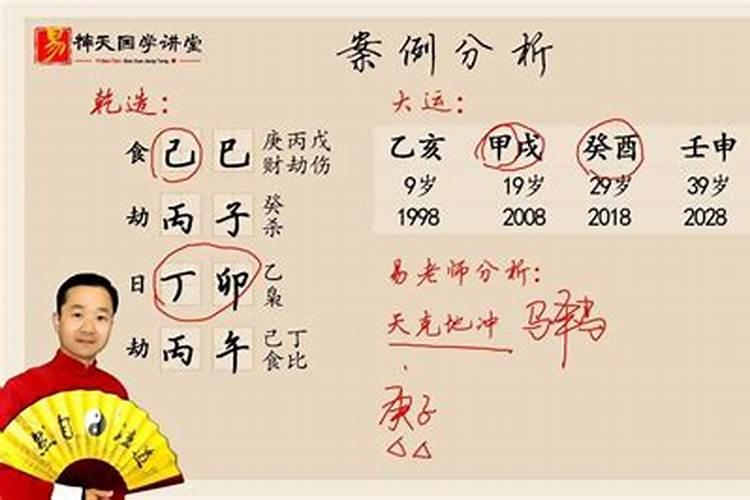 易 神天国学讲堂
案例分析
乾造：
食 己 巳 庚丙戊
财劫伤
劫 丙 子 癸
杀
日 丁 卯 乙
枭
劫 丙 午 己丁
食比
大运：
乙亥 甲戌 癸酉 壬申
9岁 19岁 29岁 39岁
1998 2008 2018 2028
易老师分析：
天克地冲
庚子
自